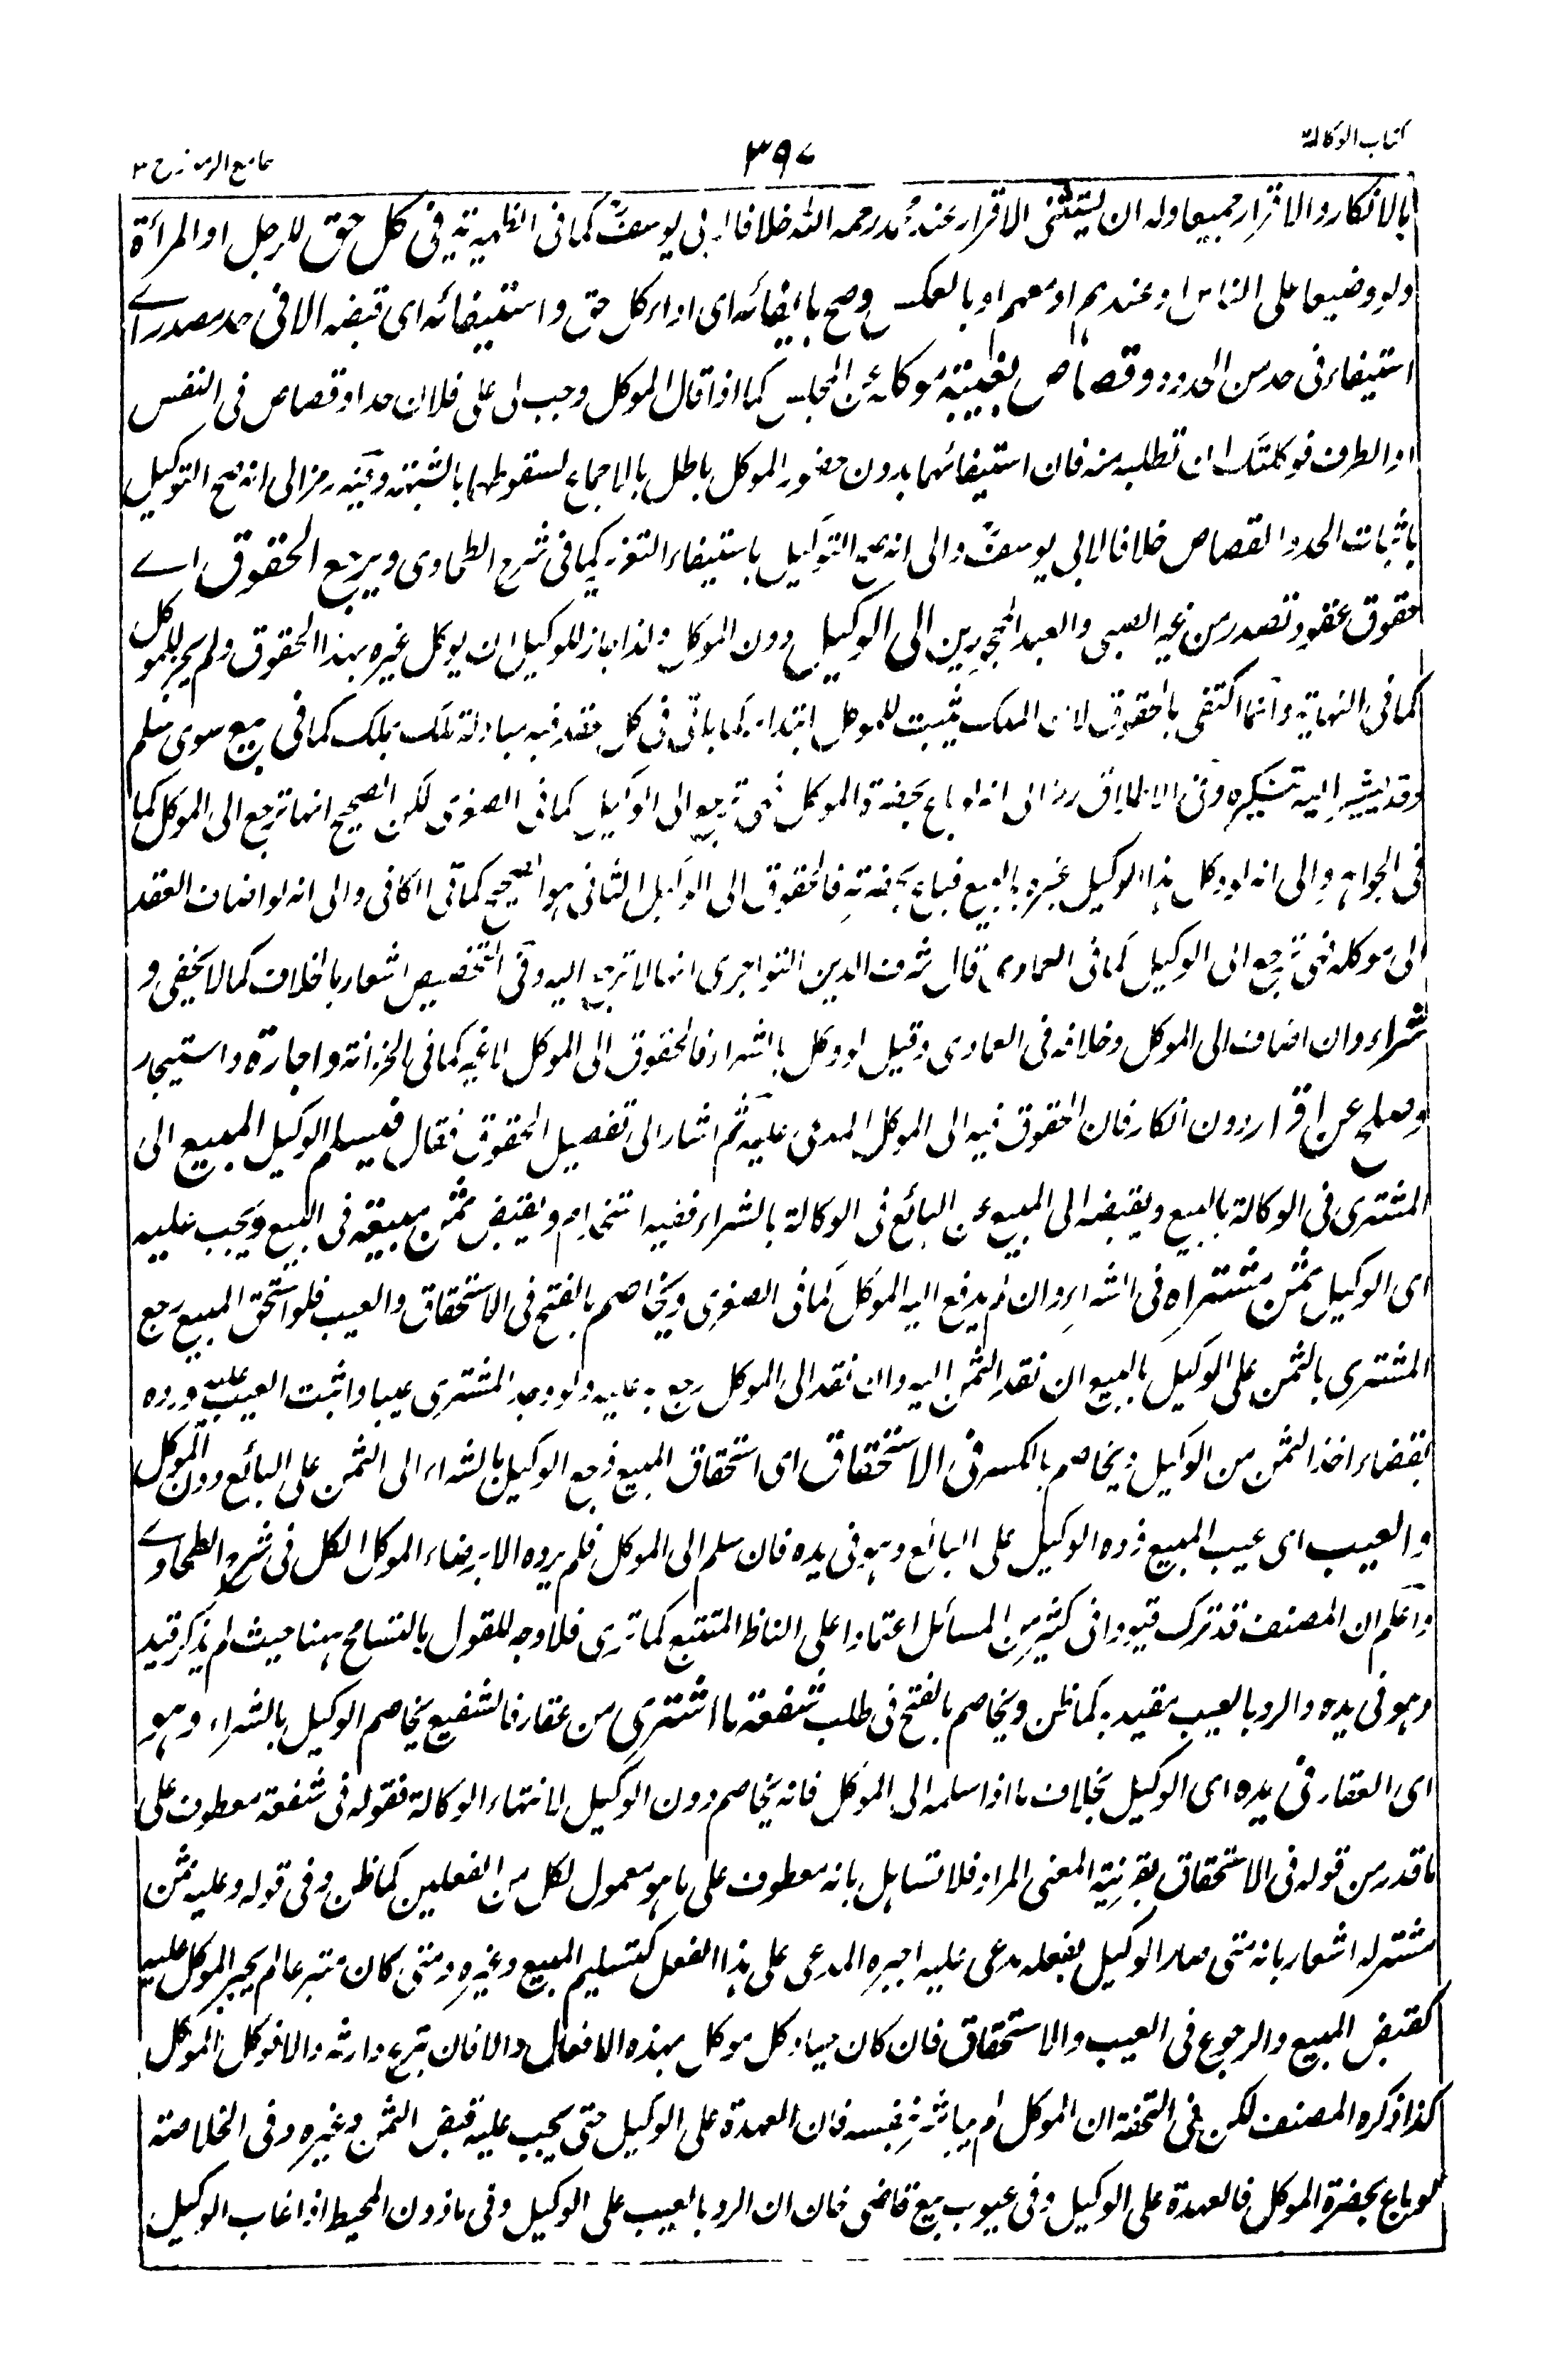 كتاب الوكالة
٣٩٧
جامع الرموز ج ٣
بالانكار والاقرار جميعا وله ان يستثنى الاقرار عند محمد رحمه الله خلافا لابى يوسف كما فى الظهيرية فى كل حق للرجل او المرأة
ولو وضيعا على الناس او عندهم او معهم او بالعكس وصح بايفائه اى اداء كل حق واستيفائه اى قبضه الا فى حد مصدر اے
استيفاء فى حد من الحدود وقصاص بغيبة موكله عن المجلس كما اذا قال الموكل وجب لى على فلان حد او قصاص فى النفس
او الطرف فوكلتك ان تطلبه منه فان استيفائهما بدون حضور الموكل باطل بالاجماع لسقوطهما بالشبهة وفيه رمز الى انه صح التوكيل
باثبات الحد والقصاص خلافا لابى يوسف والى انه صح التوكيل باستيفاء التعزير كما فى شرح الطحاوى ويرجع الحقوق اے
حقوق عقود تصدر من غير الصبى والعبد المحجورين الى الوكيل دون الموكل ولذا جاز للوكيل ان يوكل غيره بهذا الحقوق ولم يجز للموكل
كما فى النهاية وانما اكتفى بالحقوق لان الملك يثبت للموكل ابتداء كما ياتى فى كل عقد فيه مبادلة ملك بملك كما فى بيع سوى سلم
وقد يشير اليه تنكيره وفى الاطلاق رمز الى انه لو باع بحضرة الموكل فهى ترجع الى الوكيل كما فى الصغرى لكن الصحيح انها ترجع الى الموكل كما
فى الجواهر والى انه لو وكل هذا الوكيل غيره بالبيع فباع بحضرته فالحقوق الى الوكيل الثانى هو الصحيح كما فى الكافى والى انه لو اضاف العقد
الى موكله فهى ترجع الى الوكيل كما فى العمادى قال شرف الدين النواجرى انها لا ترجع اليه وفى التخصيص اشعار بالخلاف كما لا يخفى و
شراء وان اضاف الى الموكل وخلافه فى العمادى وقيل لو وكل بالشراء فالحقوق الى الموكل لا غير كما فى الخزانة واجارة واستيجار
وصلح عن اقرار دون انكار فان الحقوق فيه الى الموكل المدعى عليه ثم اشار الى تفصيل الحقوق فقال فيسلم الوكيل المبيع الى
المشترى فى الوكالة بالبيع ويقبضه الى المبيع عن البائع فى الوكالة بالشراء ففيه استخدام ويقبض ثمن مبيعه فى البيع ويجب عليه
اى الوكيل ثمن مشتراه فى الشراء وان لم يدفع اليه الموكل كما فى الصغرى ويخاصم بالفتح فى الاستحقاق والعيب فلو استحق المبيع رجع
المشترى بالثمن على الوكيل بالبيع ان نقد الثمن اليه وان نقد الى الموكل رجع به عليه ولو وجد المشترى عيبا واثبت العيب عليه ورده
بقضاء اخذ الثمن من الوكيل ويخاصم بالكسر فى الاستحقاق اى استحقاق المبيع فرجع الوكيل بالشراء الى الثمن على البائع دون الموكل
والعيب اى عيب المبيع فرده الوكيل على البائع وهو فى يده فان سلم الى الموكل فلم يرده الا برضاء الموكل الكل فى شرح الطحاوے
واعلم ان المصنف قد ترك قيودا فى كثير من المسائل اعتمادا على الناظر المتتبع كما ترى فلا وجه للقول بالتسامح ههنا حيث لم يذكر قيد
وهو فى يده والرد بالعيب مقيد به كما ظن ويخاصم بالفتح فى طلب شفعة ما اشترى من عقار فالشفيع يخاصم الوكيل بالشراء وهو
اى العقار فى يده اى الوكيل بخلاف ما اذا سلمه الى الموكل فانه يخاصم دون الوكيل لانتهاء الوكالة فقوله فى شفعة معطوف على
ما قدر من قوله فى الاستحقاق بقرينة المعنى المراد فلا تساهل بانه معطوف على ما هو معمول لكل من الفعلين كما ظن وفى قوله وعليه ثمن
مشتراه اشعار بانه متى صار الوكيل بفعله مدعى عليه اجبره المدعى على هذا الفعل كتسليم المبيع وغيره ومتى كان متبرعا لم يجبر الموكل عليه
كقبض المبيع والرجوع فى العيب والاستحقاق فان كان حيا وكل موكل بهذه الافعال والا فان تبرع وارثه والا فوكل الموكل
كذا ذكره المصنف لكن فى التحفة ان الموكل لم يباشر بنفسه فان العهدة على الوكيل حتى يجب عليه قبض الثمن وغيره وفى الخلاصة
لو باع بحضرة الموكل فالعهدة على الوكيل وفى عيوب بيع قاضى خان ان الرد بالعيب على الوكيل وفى ماذون المحيط اذا غاب الوكيل